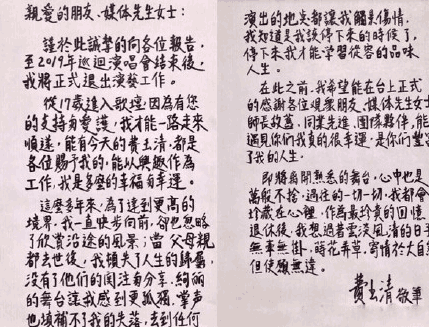 親愛的朋友、媒体先生女士：
謹於此誠摯的向各位報告，
至2019年巡迴演唱會結束後，
我將正式退出演藝工作。
從17歲進入歌壇，因為有您
的支持与愛護，我才能一路走來
順遂，能有今天的費玉清，都是
各位賜予我的，能以興趣作為
工作，我是多麼的幸福与幸運。
這麼多年來，為了達到更高的
境界，我一直快步向前，卻也忽略
了欣賞沿途的風景；當父母親
都去世後，我頓失了人生的歸屬，
沒有了他們的関注与分享，絢麗
的舞台讓我感到更孤獨，掌声
也填補不了我的失落，去到任何
演出的地点都讓我觸景傷情，
我知道是我該停下來的時候了，
停下來我才能學習從容的品味
人生。
在此之前，我希望能在台上正式
的感謝各位觀眾朋友、媒体先生女士
師長故舊、同業先進、團係夥伴，能
遇見你们我真的很幸運，是你们豐富
了我的人生。
即將告別熟悉的舞台，心中也是
萬般不捨，過往的一切一切，我都會
珍藏在心裡，作為最珍貴的回憶
退休後，我想過著雲淡風清的日子
無牽無掛，蒔花弄草，寄情於大自然
但使願無違。
費玉清 敬筆